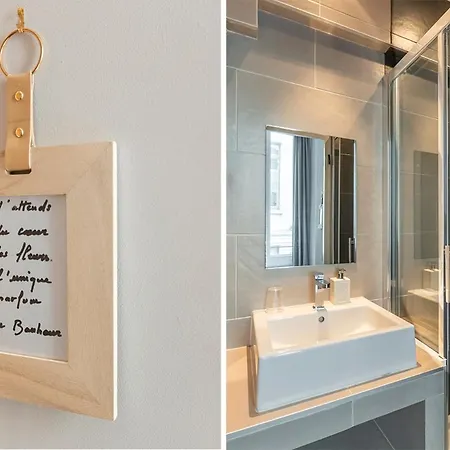 'attends
du cœur
les fleurs
l'unique
parfum
Bonheur